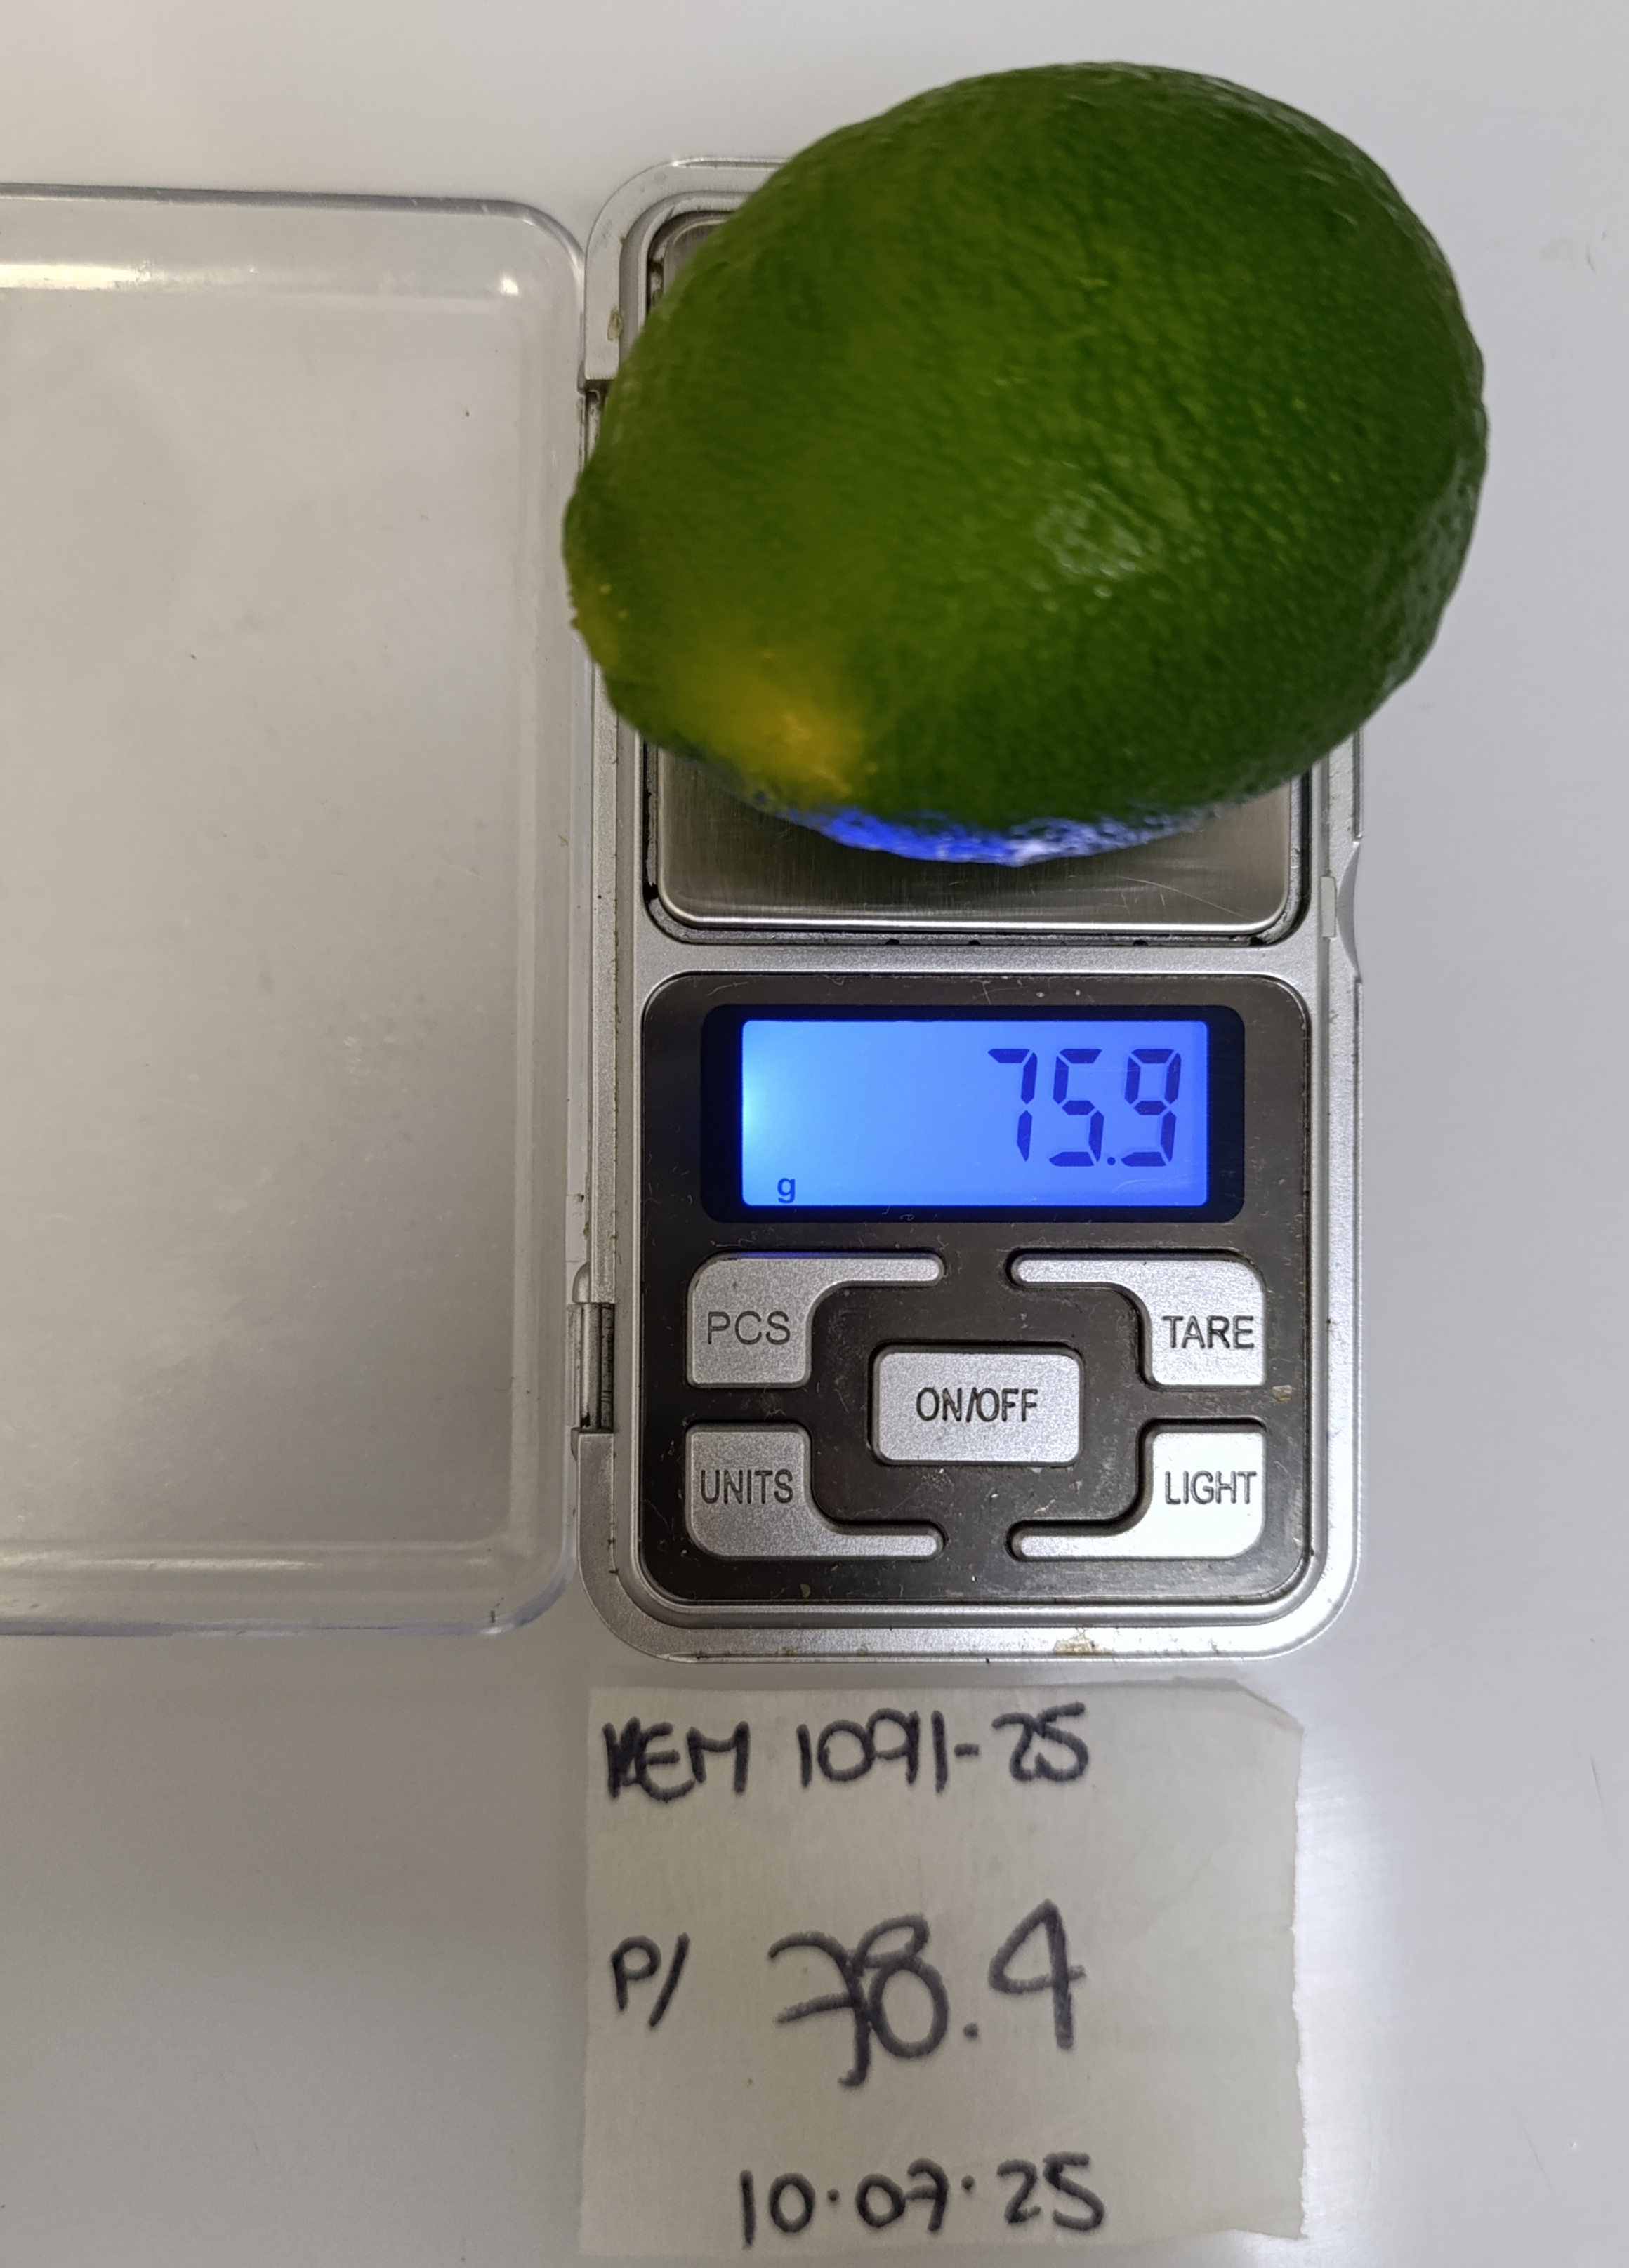 75.9
g
PCS
TARE
ON/OFF
UNITS
LIGHT
KEM 1091-25
P/ 78.4
10.07.25